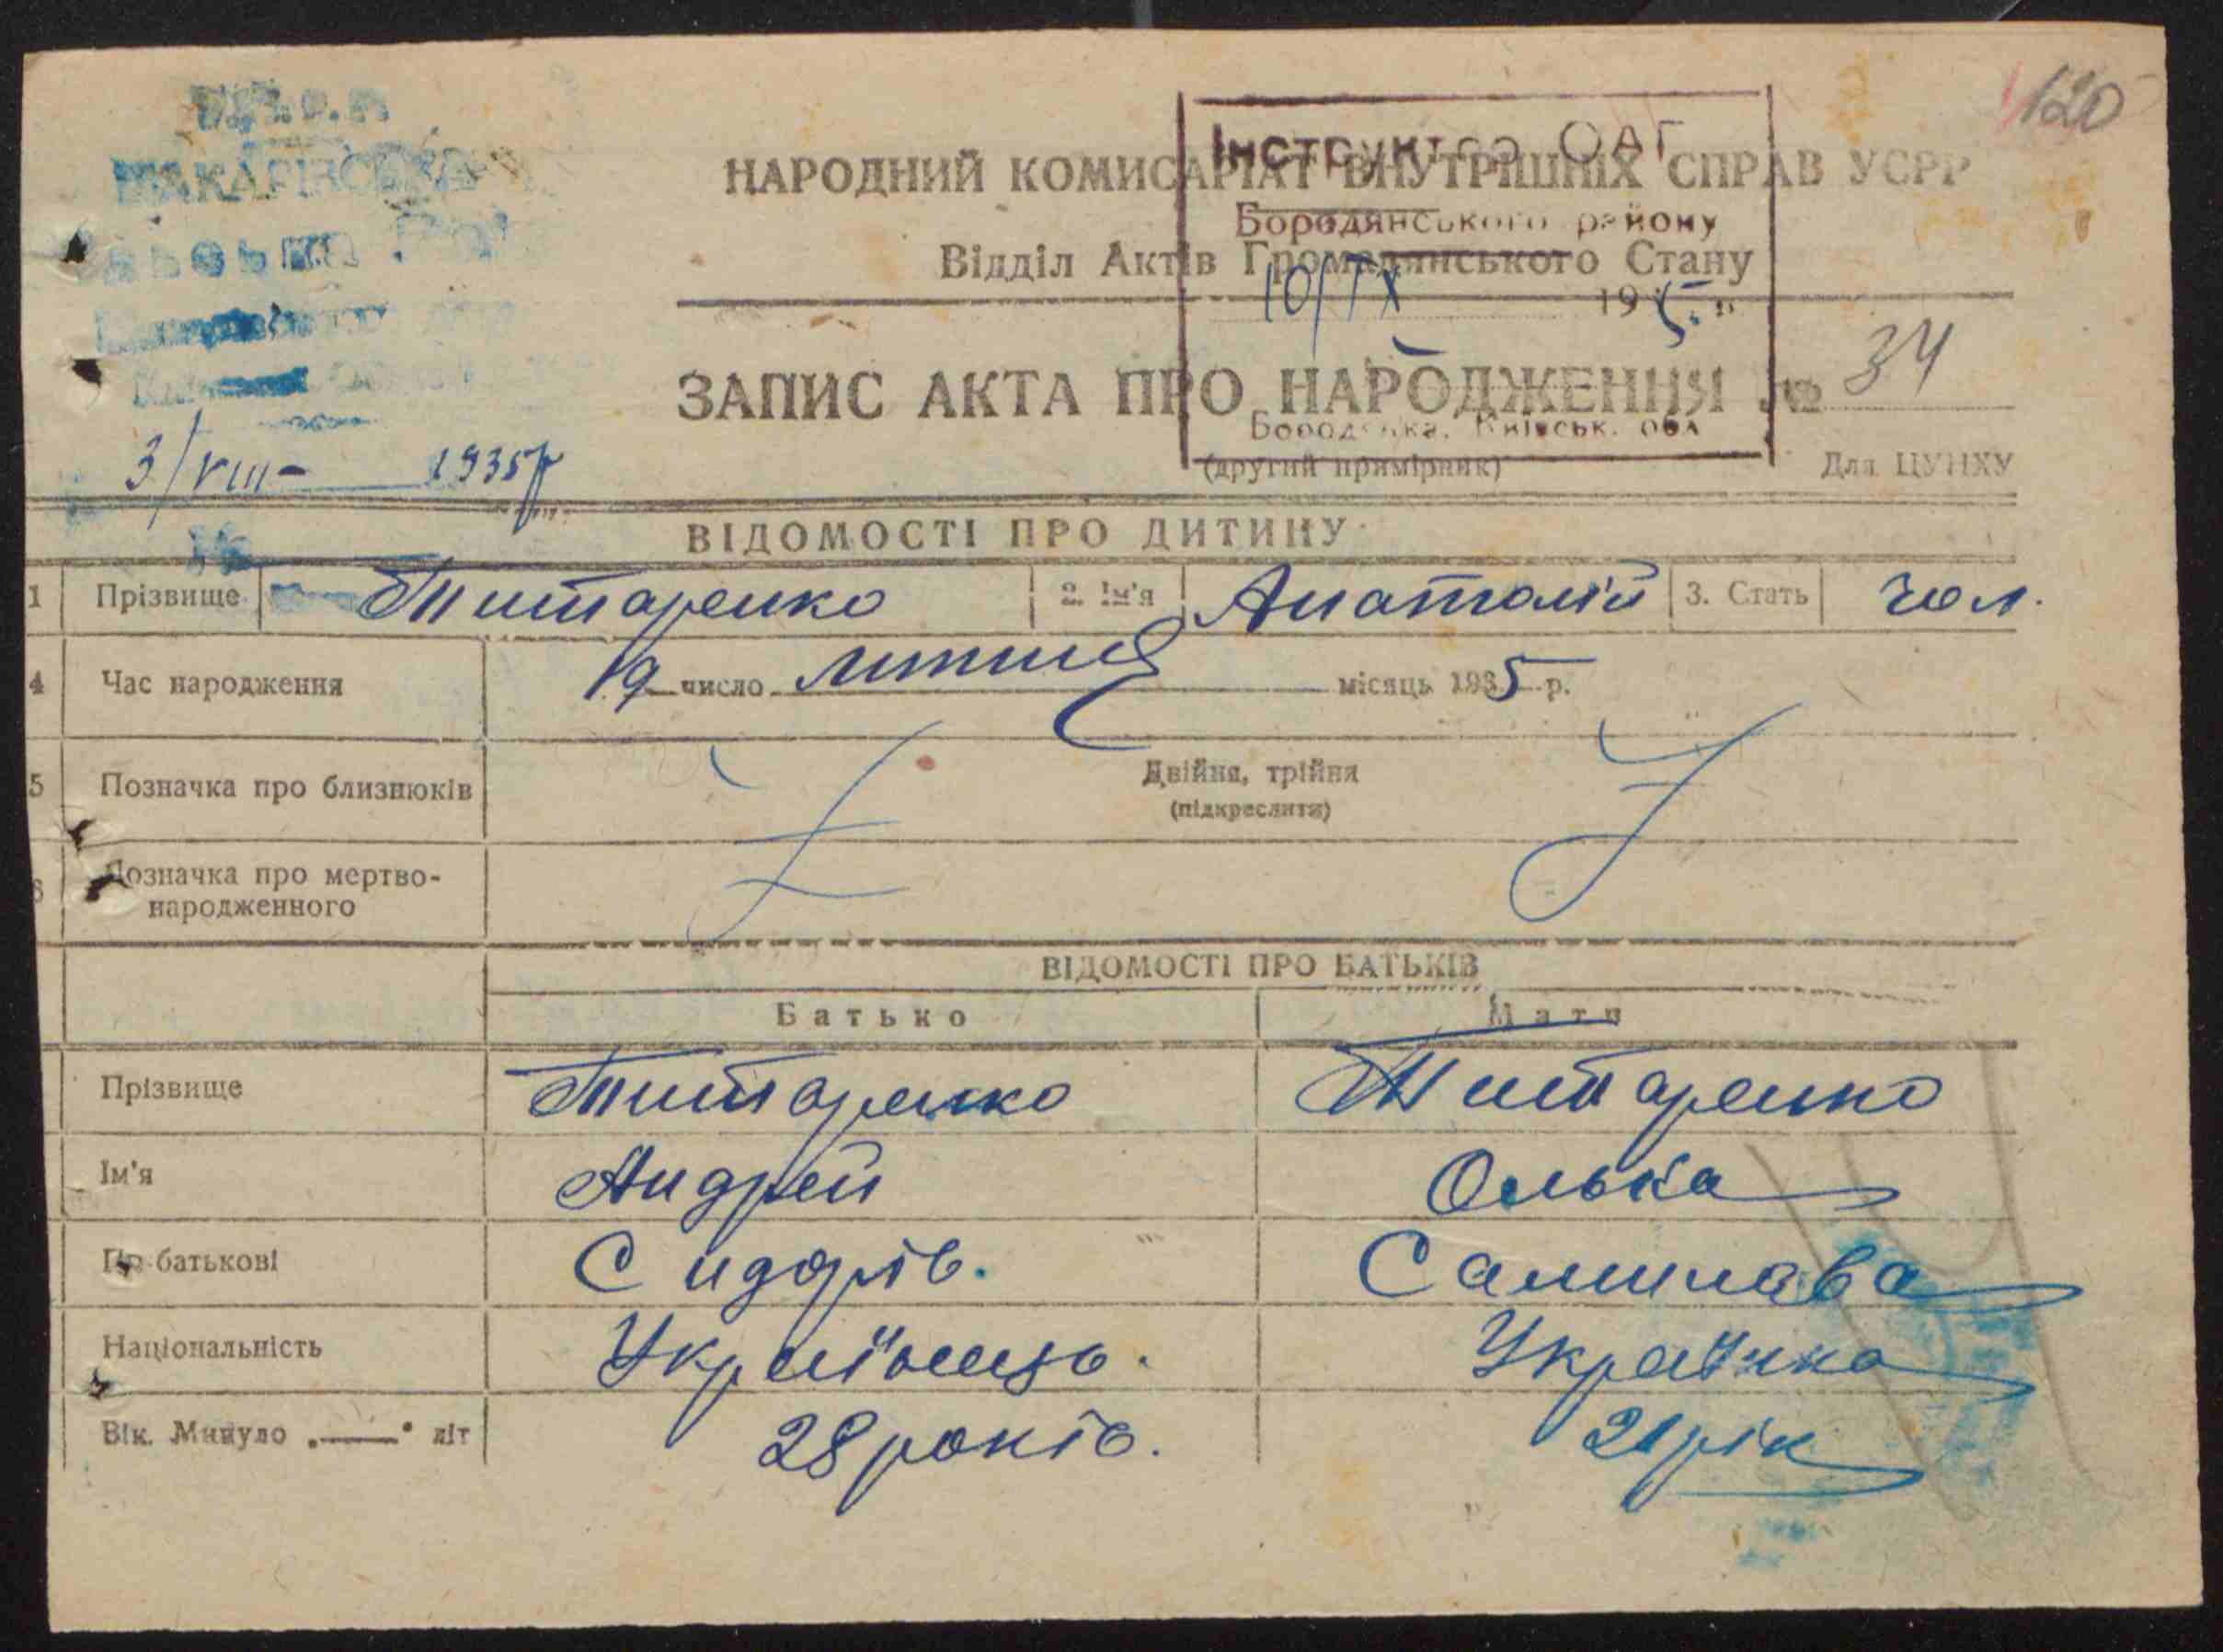 120
МАКАРІВСЬКА
НАРОДНИЙ КОМИСАРІАТ ВНУТРІШНІХ СПРАВ УСРР
Інструктор ОАГ
Бородянського району
Відділ Актів Громадянського Стану
10/IX 1935 р.
ЗАПИС АКТА ПРО НАРОДЖЕННЯ № 34
Бородянка, Київськ. обл
(другий примірник) Для ЦУНХУ
3/VIII- 1935 р
ВІДОМОСТІ ПРО ДИТИНУ
1 Прізвище Титаренко 2. Ім'я Анатолій 3. Стать чол.
4 Час народження 19 число липня місяць 1935 р.
5 Позначка про близнюків Двійня, трійня
(підкреслити)
6 Позначка про мертво-
народженного
ВІДОМОСТІ ПРО БАТЬКІВ
Батько Мати
Прізвище Титаренко Титаренко
Ім'я Андрей Олька
По батькові Сидорів.
Національність Українець. Українка
Вік. Минуло „—“ літ 28 років. 21 рік